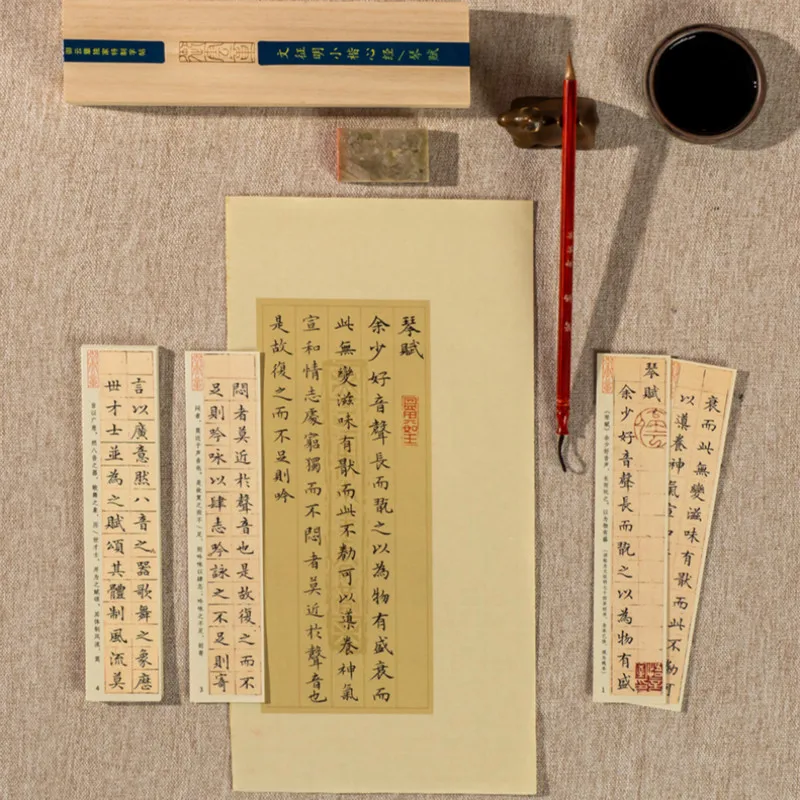 云堂独家特制字帖
文征明小楷心经/琴赋
琴賦
余少好音聲長而翫之以為物有盛衰而
此無變滋味有猒而此不勌可以導養神氣
宣和情志處窮獨而不悶者莫近於聲音也
是故復之而不足則吟
衰而此無變滋味有猒而此不勌可
以導養神氣宣
琴賦
余少好音聲長而翫之以為物有盛
1
悶者莫近於聲音也是故復之而不
足則吟咏以肆志吟詠之不足則寄
3
言以廣意然八音之器歌舞之象歷
世才士並為之賦頌其體制風流莫
4